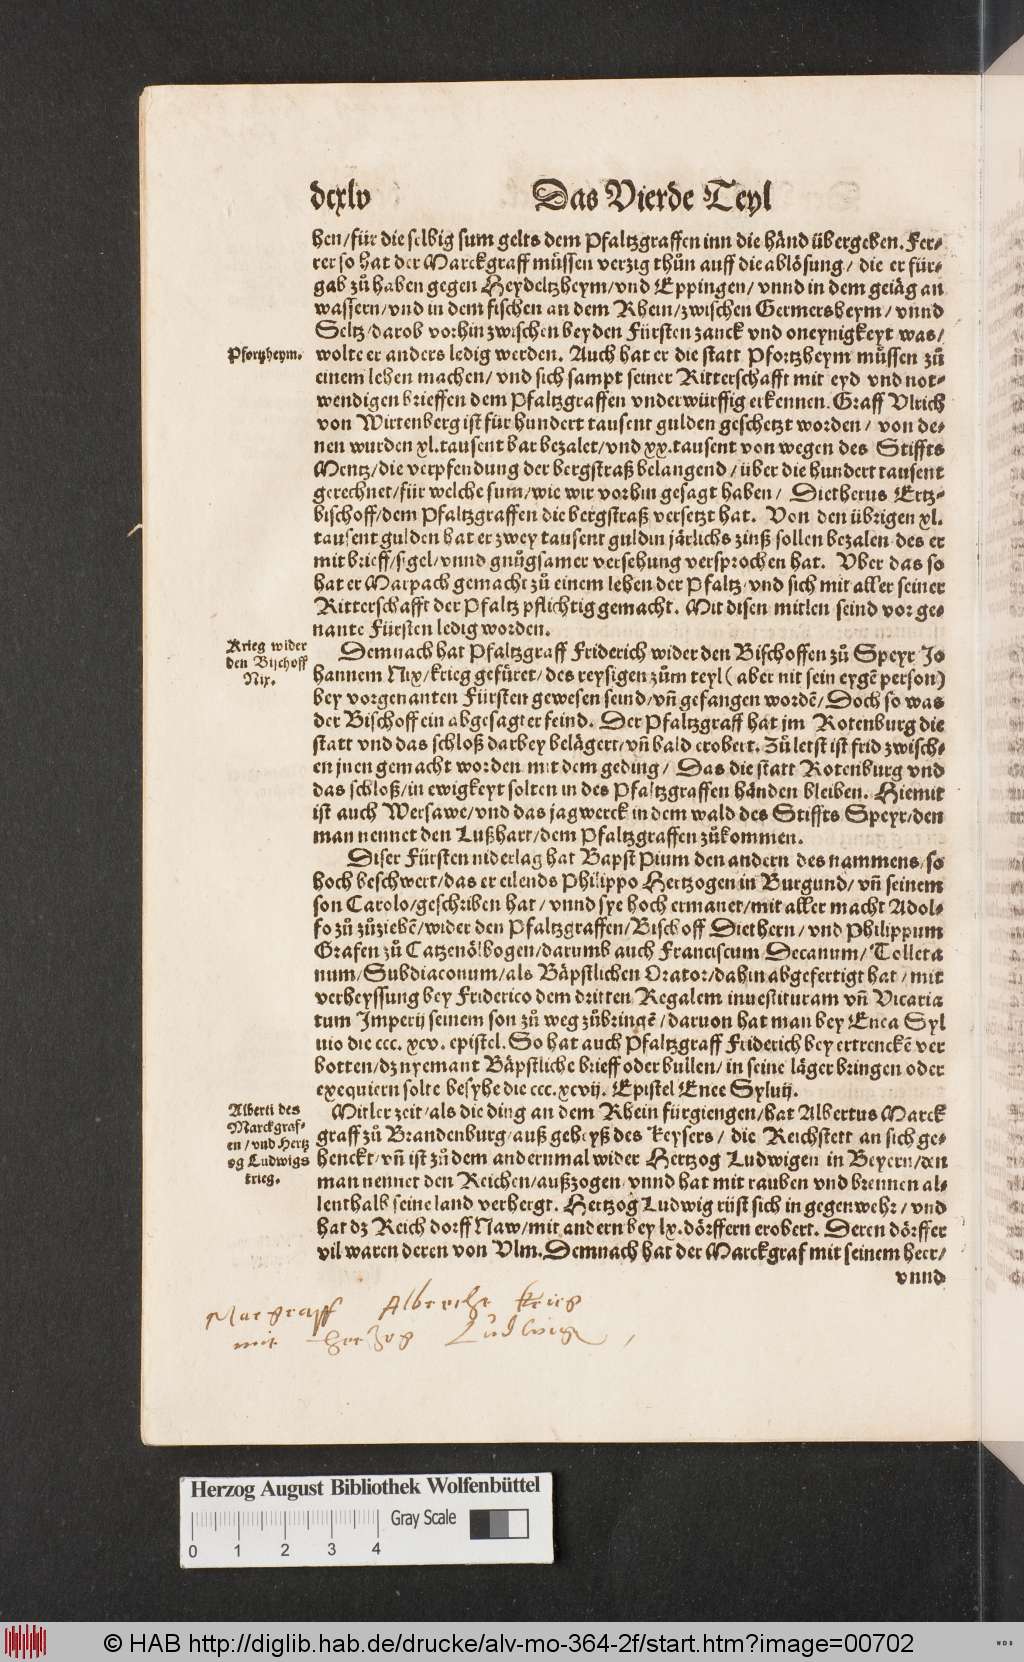 dcxlv Das Vierde Teyl
hen/für die selbig sum gelts dem Pfaltzgraffen inn die händ übergeben. Fer-
rer so hat der Marckgraff müssen verzig thůn auff die ablösung/ die er für-
gab zů haben gegen Heydeltzheym/vnd Eppingen/ vnnd in dem geiäg an
wassern/vnd in dem fischen an dem Rhein/zwischen Germersheym/ vnnd
Seltz/darob vorhin zwischen beyden Fürsten zanck vnd oneynigkeyt was/
Pfortzheym. wolte er anders ledig werden. Auch hat er die statt Pfortzheym müssen zů
einem lehen machen/ vnd sich sampt seiner Ritterschafft mit eyd vnd not-
wendigen brieffen dem Pfaltzgraffen vnderwürffig erkennen. Graff Vlrich
von Wirtenberg ist für hundert tausent gulden geschetzt worden/ von de-
nen wurden xl. tausent bar bezalet/vnd xx. tausent von wegen des Stiffts
Mentz/die verpfendung der bergstraß belangend/ über die hundert tausent
gerechnet/für welche sum/wie wir vorhin gesagt haben/ Dietherus Ertz-
bischoff/dem Pfaltzgraffen die bergstraß versetzt hat. Von den übrigen xl.
tausent gulden hat er zwey tausent guldin järlichs zinß sollen bezalen/des er
mit brieff/sigel/vnnd gnůgsamer versehung versprochen hat. Vber das so
hat er Marpach gemacht zů einem lehen der Pfaltz/vnd sich mit aller seiner
Ritterschafft der Pfaltz pflichtig gemacht. Mit disen mitlen seind vor ge-
nante Fürsten ledig worden.
Krieg wider
den Bischoff
Nix.
Demnach hat Pfaltzgraff Friderich wider den Bischoffen zů Speyr Jo
hannem Nix/krieg gefüret/des reysigen zům teyl (aber nit sein eygē person)
bey vorgenanten Fürsten gewesen seind/vñ gefangen wordē/Doch so was
der Bischoff ein abgesagter feind. Der Pfaltzgraff hat jm Rotenburg die
statt vnd das schloß darbey belägert/vñ bald erobert. Zů letst ist frid zwisch-
en jnen gemacht worden mit dem geding/ Das die statt Rotenburg vnd
das schloß/in ewigkeyt solten in des Pfaltzgraffen händen bleiben. Hiemit
ist auch Wersawe/vnd das jagwerck in dem wald des Stiffts Speyr/den
man nennet den Lußhart/dem Pfaltzgraffen zůkommen.
Diser Fürsten niderlag hat Bapst Pium den andern des nammens/so
hoch beschwert/das er eilends Philippo Hertzogen in Burgund/ vñ seinem
son Carolo/geschriben hat/ vnnd sye hoch ermanet/mit aller macht Adol-
fo zů zůziehē/wider den Pfaltzgraffen/Bischoff Diethern/ vnd Philippum
Grafen zů Catzenölbogen/darumb auch Franciscum Decanum/ Tolleta
num/Subdiaconum/als Bäpstlichen Orator/dahin abgefertigt hat/ mit
verheyssung bey Friderico dem dritten Regalem inuestituram vñ Vicaria
tum Imperij seinem son zů weg zůbringē/daruon hat man bey Enea Syl
uio die ccc. xcv. epistel. So hat auch Pfaltzgraff Friderich bey ertrenckē ver
botten/dz nyemant Bäpstliche brieff oder bullen/in seine läger bringen oder
exequiern solte besyhe die ccc.xcvij. Epistel Enee Syluij.
Alberti des
Marckgraf-
en/vnd Hertz
og Ludwigs
krieg.
Mitler zeit/als die ding an dem Rhein fürgiengen/hat Albertus Marck
graff zů Brandenburg/auß geheyß des Keysers/ die Reichstett an sich ge-
henckt/vñ ist zů dem andernmal wider Hertzog Ludwigen in Beyern/den
man nennet den Reichen/außzogen/vnnd hat mit rauben vnd brennen al-
lenthalb seine land verhergt. Hertzog Ludwig rüst sich in gegenwehr/ vnd
hat dz Reich dorff Naw/mit andern bey lx. dörffern erobert. Deren dörffer
vil waren deren von Vlm. Demnach hat der Marckgraf mit seinem heer/
vnnd
Margraff Albrecht krieg
mit Hertzog Ludwig
Herzog August Bibliothek Wolfenbüttel
Gray Scale
0 1 2 3 4
© HAB http://diglib.hab.de/drucke/alv-mo-364-2f/start.htm?image=00702